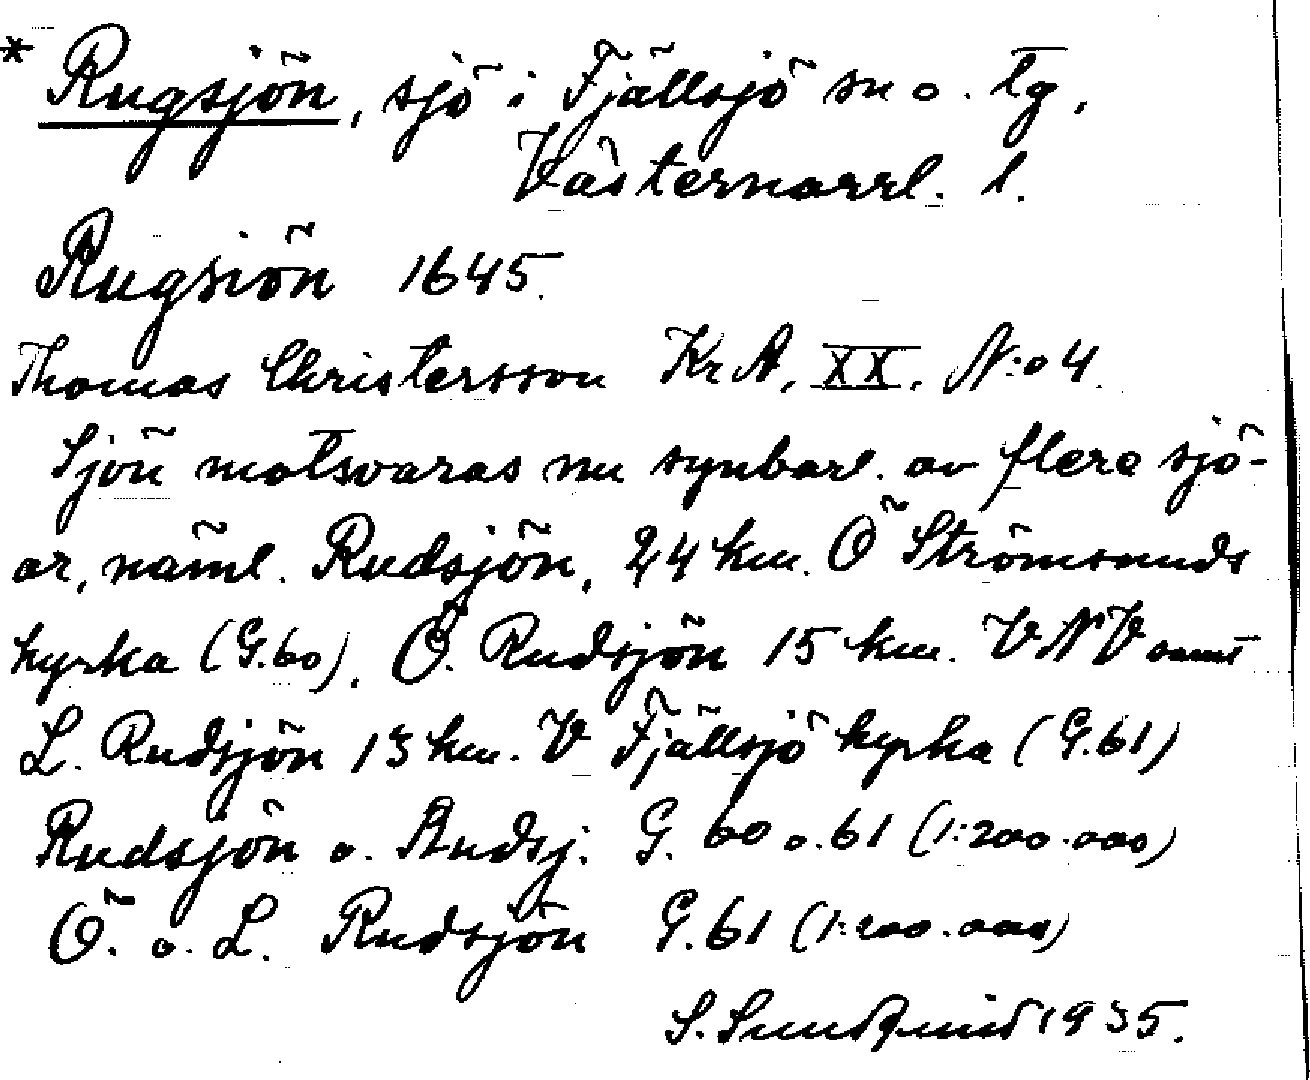 * Rugsjön, sjö i Fjällsjö sn o. tg,
Västernorrl. l.
Rugsiön 1645.
Thomas Christersson KrA, XX, N:o 4.
Sjön motsvaras nu synbarl. av flera sjö-
ar, näml. Rudsjön, 24 km. Ö Strömsunds
kyrka (G.60), Ö. Rudsjön 15 km. VNV samt
L. Rudsjön 13 km. V Fjällsjö kyrka (G.61)
Rudsjön o. Rudsj. G. 60 o. 61 (1:200.000)
Ö. o. L. Rudsjön G.61 (1:200.000)
S. Sundqvist 1935.